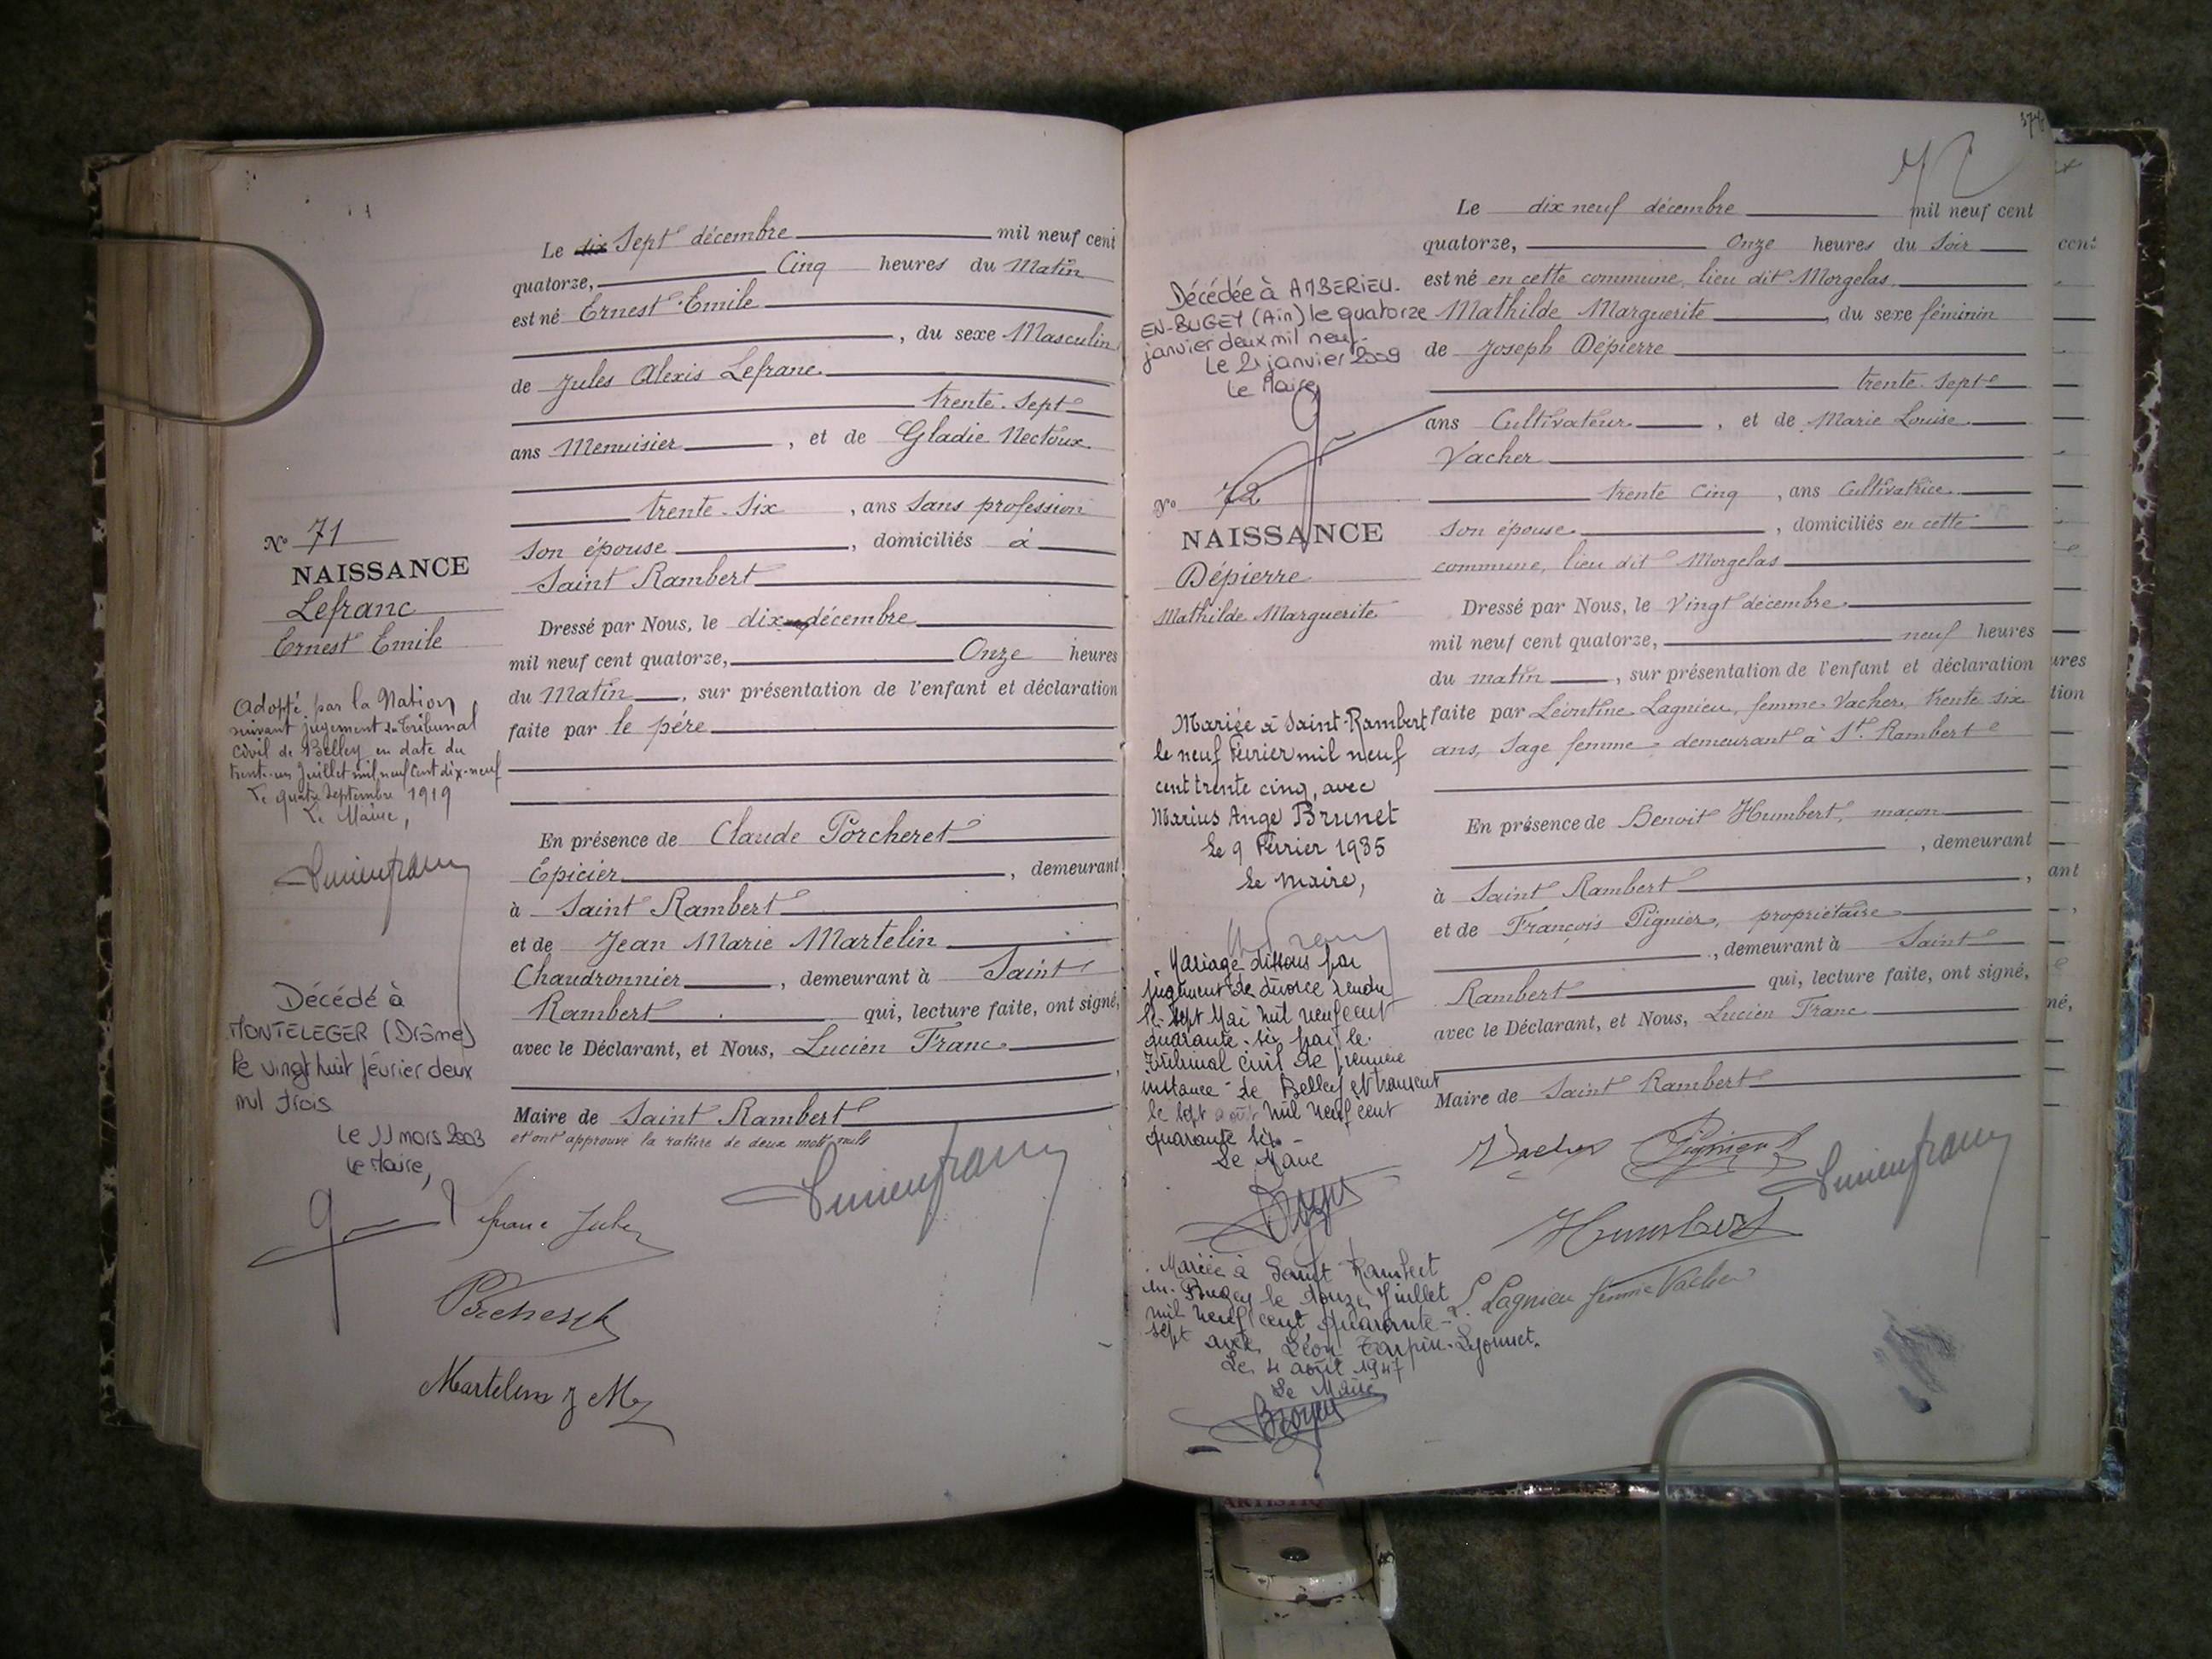 Le dix Sept décembre mil neuf cent
quatorze, Cinq heures du Matin
est né Ernest Emile
, du sexe Masculin
de Jules Alexis Lefranc
trente-sept
ans Menuisier, et de Gladie Nectoux
trente-six, ans sans profession
son épouse, domiciliés à
Saint Rambert
Dressé par Nous, le dix décembre
mil neuf cent quatorze, Onze heures
du Matin, sur présentation de l'enfant et déclaration
faite par le père
En présence de Claude Porcheret
Epicier, demeurant
à Saint Rambert
et de Jean Marie Martelin
Chaudronnier, demeurant à Saint
Rambert qui, lecture faite, ont signé,
avec le Déclarant, et Nous, Lucien Franc
,
Maire de Saint Rambert
et ont approuvé la rature de deux mots nuls
Nº 71
NAISSANCE
Lefranc
Ernest Emile
Adopté par la Nation
suivant jugement du Tribunal
Civil de Belley en date du
trente-un Juillet mil neuf cent dix-neuf
Le quatre Septembre 1919
Le Maire,
Lucien Franc
Décédé à
MONTELEGER (Drôme)
le vingt huit février deux
mil trois
Le 11 mars 2003
Le Maire,
Lefranc Jules
Lucien Franc
Porcheret
Martelin J M
374
72
Le dix neuf décembre mil neuf cent
quatorze, Onze heures du Soir
est né en cette commune, lieu dit Morgelas
Mathilde Marguerite, du sexe féminin
de Joseph Dépierre
trente-sept
ans Cultivateur, et de Marie Louise
Vacher
trente cinq, ans Cultivatrice
Son épouse, domiciliés en cette
commune, lieu dit Morgelas
Dressé par Nous, le Vingt décembre
mil neuf cent quatorze, neuf heures
du matin, sur présentation de l'enfant et déclaration
faite par Léontine Lagnieu, femme Vacher, trente six
ans, Sage femme demeurant à St. Rambert
En présence de Benoit Humbert, maçon
, demeurant
à Saint Rambert,
et de François Pignier, propriétaire
, demeurant à Saint
Rambert qui, lecture faite, ont signé,
avec le Déclarant, et Nous, Lucien Franc
Maire de Saint Rambert
Décédée à AMBERIEU-
EN-BUGEY (Ain) le quatorze
janvier deux mil neuf
Le 21 janvier 2009
Le Maire
Nº 72
NAISSANCE
Dépierre
Mathilde Marguerite
Mariée à Saint-Rambert
le neuf Février mil neuf
cent trente cinq, avec
Marius Ange Brunet
Le 9 Février 1935
Le Maire,
Mariage dissous par
jugement de divorce rendu
le sept Mai mil neuf cent
quarante-six par le
Tribunal civil de première
instance de Belley et transcrit
le sept août mil neuf cent
quarante six-
Le Maire
Mariée à Saint Rambert
en-Bugey le douze Juillet
mil neuf cent quarante-
sept avec Léon Turpin-Lyonnet.
Le 4 août 1947
Le Maire
Vacher Pignier
Lucien Franc
Humbert
L. Lagnieu femme Vacher
cent
ures
tion
ant
,
né,
ARTISTIQ